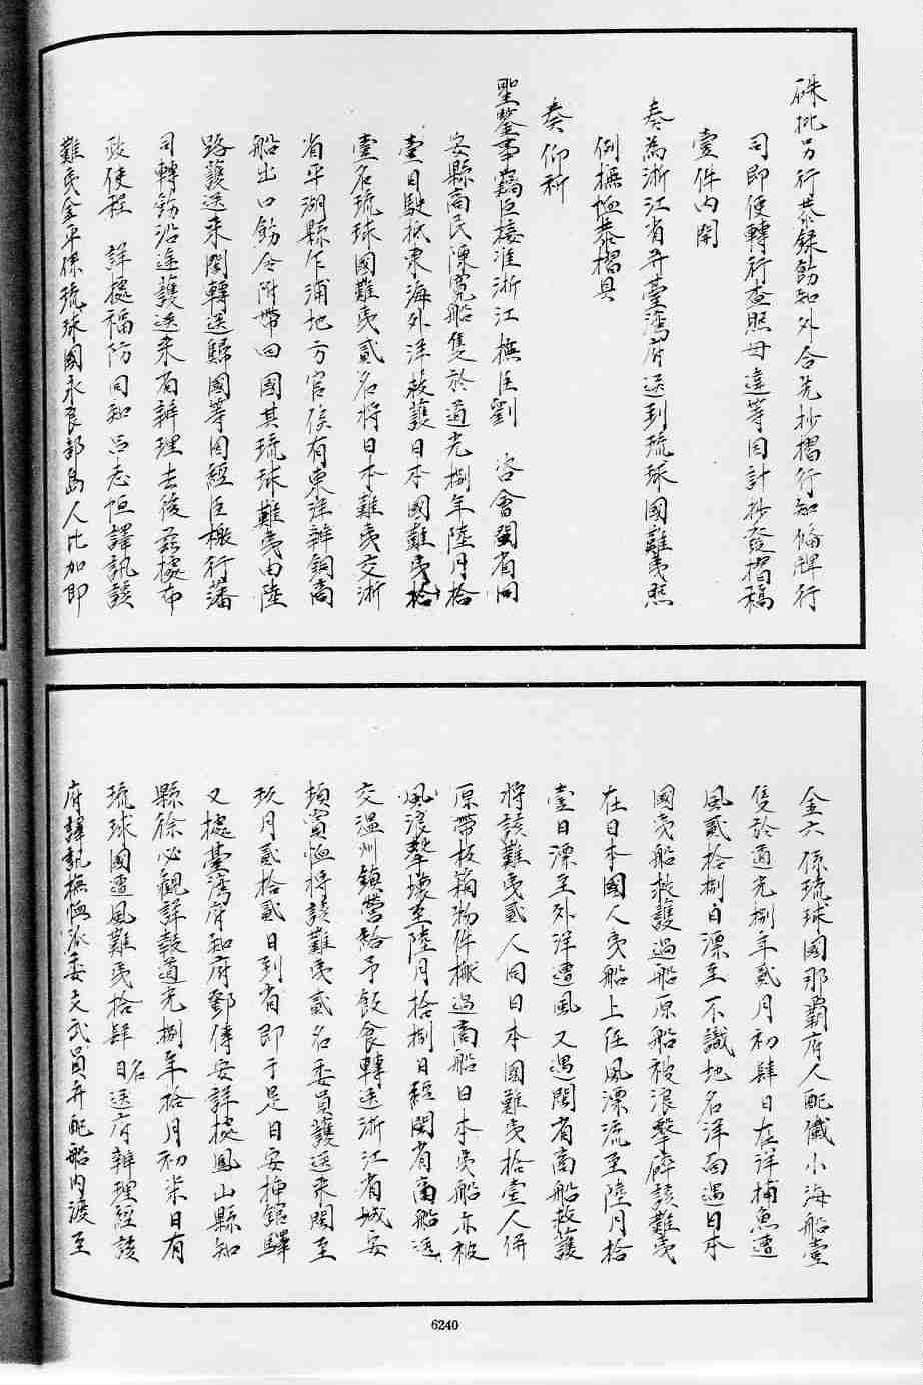 硃批另行恭錄飭知外合先抄摺行知備牌行
司卽便轉行查照毋違等因計抄發摺稿
壹件內開
奏為浙江省并臺灣府送到琉球國難夷照
例撫恤恭摺具
奏仰祈
聖鑒事竊臣接准浙江撫臣劉　咨會閩省同
安縣商民陳寬船隻於道光捌年陸月拾
壹日駛抵東海外洋救護日本國難夷拾
壹名琉球國難夷貳名將日本難夷交浙
省平湖縣乍浦地方官俟有東洋辦銅商
船出口飭令附帶回國其琉球難夷由陸
路護送來閩轉送歸國等因經臣檄行藩
司轉飭沿途護送來省辦理去後茲據布
政使程　詳據福防同知呂志恒譯訊該
難夷金平係琉球國永良部島人比加卽
金六係琉球國那霸府人配儎小海船壹
隻於道光捌年貳月初肆日在洋捕魚遭
風貳拾捌日漂至不識地名洋面遇日本
國夷船救護過船原船被浪擊碎該難夷
在日本國人夷船上任風漂流至陸月拾
壹日漂至外洋遭風又遇閩省商船救護
將該難夷貳人同日本國難夷拾壹人併
原帶板箱物件搬過商船日本夷船亦被
風浪擊壞至陸月拾捌日經閩省商船送
交溫州鎮營給予飲食轉送浙江省城安
頓賞恤將該難夷貳名委員護送來閩至
玖月貳拾貳日到省卽于是日安插館驛
又據臺灣府知府鄧傳安詳據鳳山縣知
縣徐必觀詳報道光捌年拾月初柒日有
琉球國遭風難夷拾肆名日送府辦理經該
府譯訊撫恤派委文武員弁配船內渡至
6240